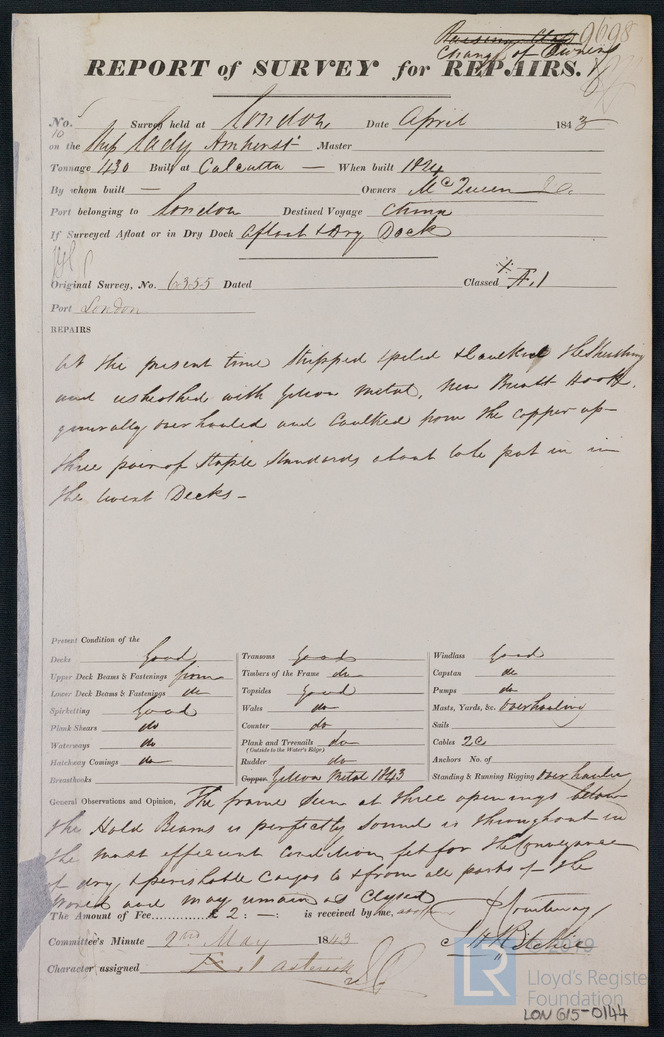 Raising Class 9698
Change of Owners
REPORT of SURVEY for REPAIRS.
No. Survey held at London Date April 1843
on the Ship Lady Amherst Master
Tonnage 430 Built at Calcutta — When built 1824
By whom built — Owners McQueen & Co
Port belonging to London Destined Voyage China
If Surveyed Afloat or in Dry Dock Afloat & Dry Dock
Original Survey, No. 6355 Dated Classed A.1
Port London
REPAIRS
At the present time stripped & caulked the sheathing
and resheathed with Yellow Metal, New Breast Hook,
generally overhauled and Caulked from the copper up—
three pair of Staple Standards about to be put in in
the twixt Decks—
Present Condition of the
Decks Good
Upper Deck Beams & Fastenings firm
Lower Deck Beams & Fastenings do
Spirketting Good
Plank Shears do
Waterways do
Hatchway Comings do
Breasthooks
Transoms Good
Timbers of the Frame do
Topsides Good
Wales do
Counter do
Plank and Treenails do
(Outside to the Water's Edge)
Rudder do
Copper Yellow Metal 1843
Windlass Good
Capstan do
Pumps do
Masts, Yards, &c. Overhauling
Sails
Cables 2 C
Anchors No. of
Standing & Running Rigging Overhauled
General Observations and Opinion, The frame seen at three openings below
the Hold Beams is perfectly sound is throughout in
the most efficient Condition, fit for the Conveyance
of dry & perishable Cargo to & from all parts of the
World and may remain as Classed
The Amount of Fee............£ 2 : — : is received by me, J Courtenay
Committee's Minute 2nd May 1843 J H Ritchie
Character assigned A 1 asterisk
2019
LR
Lloyd's Register
Foundation
LON 615-0144